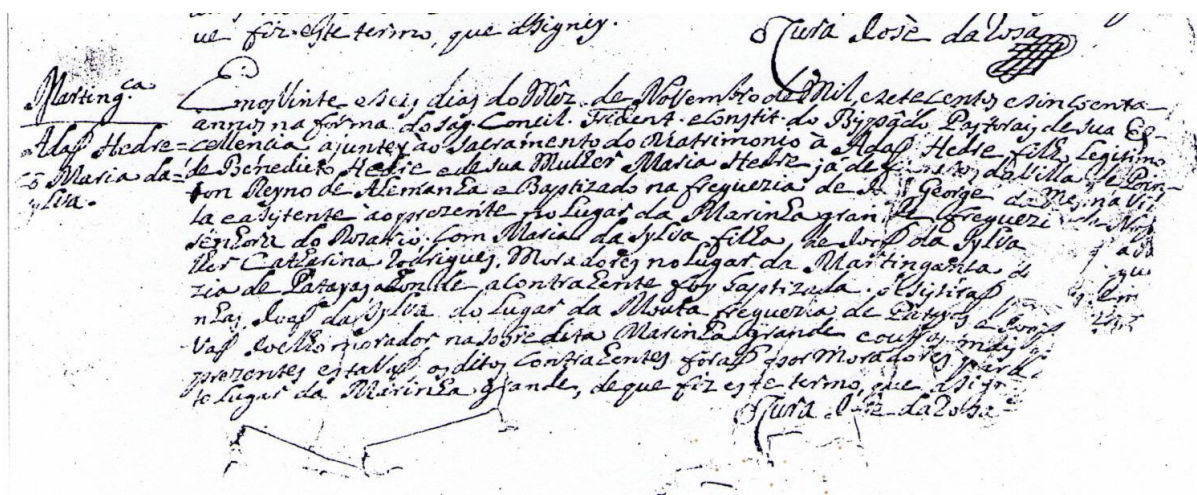 ue fiz este termo, que asigney.
O Cura Josè da Rosa
Marting.ca
Adaõ Hedre
cõ Maria da
Sylva.
Em os Vinte e seis dias do Mez de Novembro de Mil, e sete centos e sincoenta
annos na forma do Sag. Concil. Trident. e Constit. do Byspãdo Pastorais de sua Ex
cellencia ajuntey ao Sacramento do Matrimonio à Adaõ Hedre filho Legitimo
de Benedicto Hedre e de sua Mulher Maria Hedre já de da Villa de
Reyno de Alemanha e Baptizado na freguezia de S. George da na Vil
la e asistente ao prezente no Lugar da Marinha grande freguezia de N.
Senhora do Rosario, com Maria da Sylva filha, de Joaõ da Sylva
lher Catharina Rodrigues, Moradores no lugar da Martinganta
zia de Patayas aonde a contraente foy baptizada. asistiraõ
nhas Joaõ da Sylva do Lugar da Mouta freguezia de Patayas e
Vas Coelho morador na sobre dita Marinha grande e outros mais
prezentes estavaõ os ditos Contraentes foraõ ser Moradores para
to Lugar da Marinha grande, de que fiz este termo, que asign
O Cura Josè da Rosa